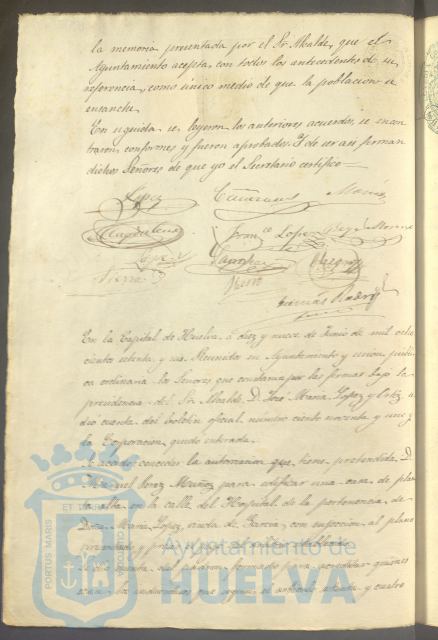 la memoria presentada por el Sr. Alcalde, que el
Ayuntamiento acepta, con todos los antecedentes de su
referencia, como único medio de que la poblacion se
ensanche.
En seguida se leyeron los anteriores acuerdos, se encon
traron conformes y fueron aprobados. Y de ser asi firman
dichos Señores de que yo el Secretario certifico
Lopez
Magdalena
Franco Lopez
En la Capital de Huelva, á diez y nueve de Junio de mil ocho
cientos setenta y Reunidos su Ayuntamiento y sesion públi
ca ordinaria los Señores que constan por las firmas bajo la
presidencia del Sr. Alcalde D. José Maria Lopez y Ortiz se
dió cuenta del boletin oficial número ciento noventa y
la Corporacion quedó enterada.
Se acordó conceder la autorizacion que tiene pretendida D.
Manuel Perez Muñoz para edificar una casa de plan
ta alta en la calle del Hospital de la pertenencia de
Doña Maria Lopez, viuda de Garcia, con sujecion al plano
presentado y
Se dió cuenta del padron formado para acreditar quienes
los individuos que segun el articulo setenta y cuatro
PORTUS MARIS
ET TERRAE
CUSTODIA
Ayuntamiento de
HUELVA